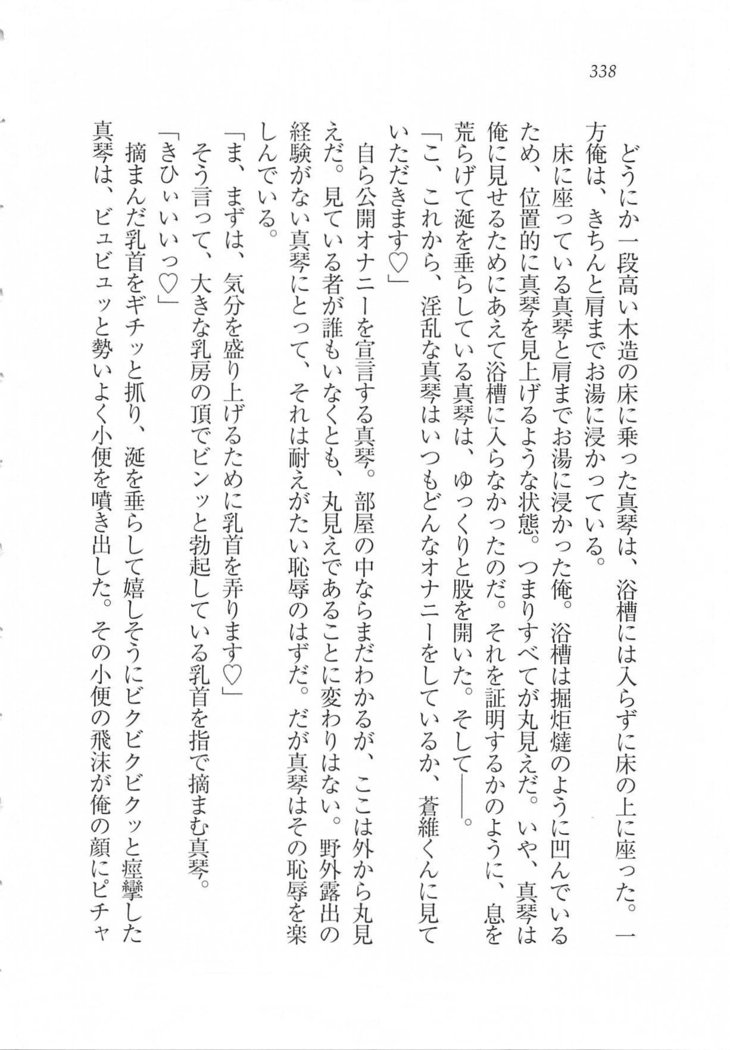 338
どうにか一段高い木造の床に乗った真琴は、浴槽には入らずに床の上に座った。一
方俺は、きちんと肩までお湯に浸かっている。
床に座っている真琴と肩までお湯に浸かった俺。浴槽は掘炬燵のように凹んでいる
ため、位置的に真琴を見上げるような状態。つまりすべてが丸見えだ。いや、真琴は
俺に見せるためにあえて浴槽に入らなかったのだ。それを証明するかのように、息を
荒らげて涎を垂らしている真琴は、ゆっくりと股を開いた。そして――。
「こ、これから、淫乱な真琴はいつもどんなオナニーをしているか、蒼維くんに見て
いただきます♡」
自ら公開オナニーを宣言する真琴。部屋の中ならまだわかるが、ここは外から丸見
えだ。見ている者が誰もいなくとも、丸見えであることに変わりはない。野外露出の
経験がない真琴にとって、それは耐えがたい恥辱のはずだ。だが真琴はその恥辱を楽
しんでいる。
「ま、まずは、気分を盛り上げるために乳首を弄ります♡」
そう言って、大きな乳房の頂でビンッと勃起している乳首を指で摘まむ真琴。
「きひぃいいいっ♡」
摘まんだ乳首をギチッと抓り、涎を垂らして嬉しそうにビクビクビクッと痙攣した
真琴は、ビュビュッと勢いよく小便を噴き出した。その小便の飛沫が俺の顔にピチャ